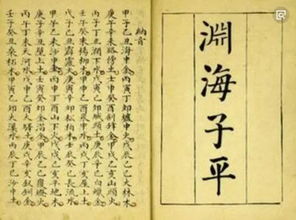 淵海子平
納音
甲子乙丑海中金丙寅丁卯爐中火戊辰己巳大林木
庚午辛未路傍土壬申癸酉劍鋒金甲戌乙亥山頭火
丙子丁丑澗下水戊寅己卯城頭土庚辰辛巳白
壬午癸未楊柳木甲申乙酉泉中水丙戌丁亥屋上土
戊子己丑霹靂火庚寅辛卯松柏木壬辰癸巳長流水
甲午乙未沙中金丙申丁酉山下火戊戌己亥平地木
庚子辛丑壁上土壬寅癸卯金箔金甲辰乙巳覆燈火
丙午丁未天河水戊申己酉大驛土庚戌辛亥釵釧金
壬子癸丑桑柘木甲寅乙卯大溪水丙辰丁巳沙中土